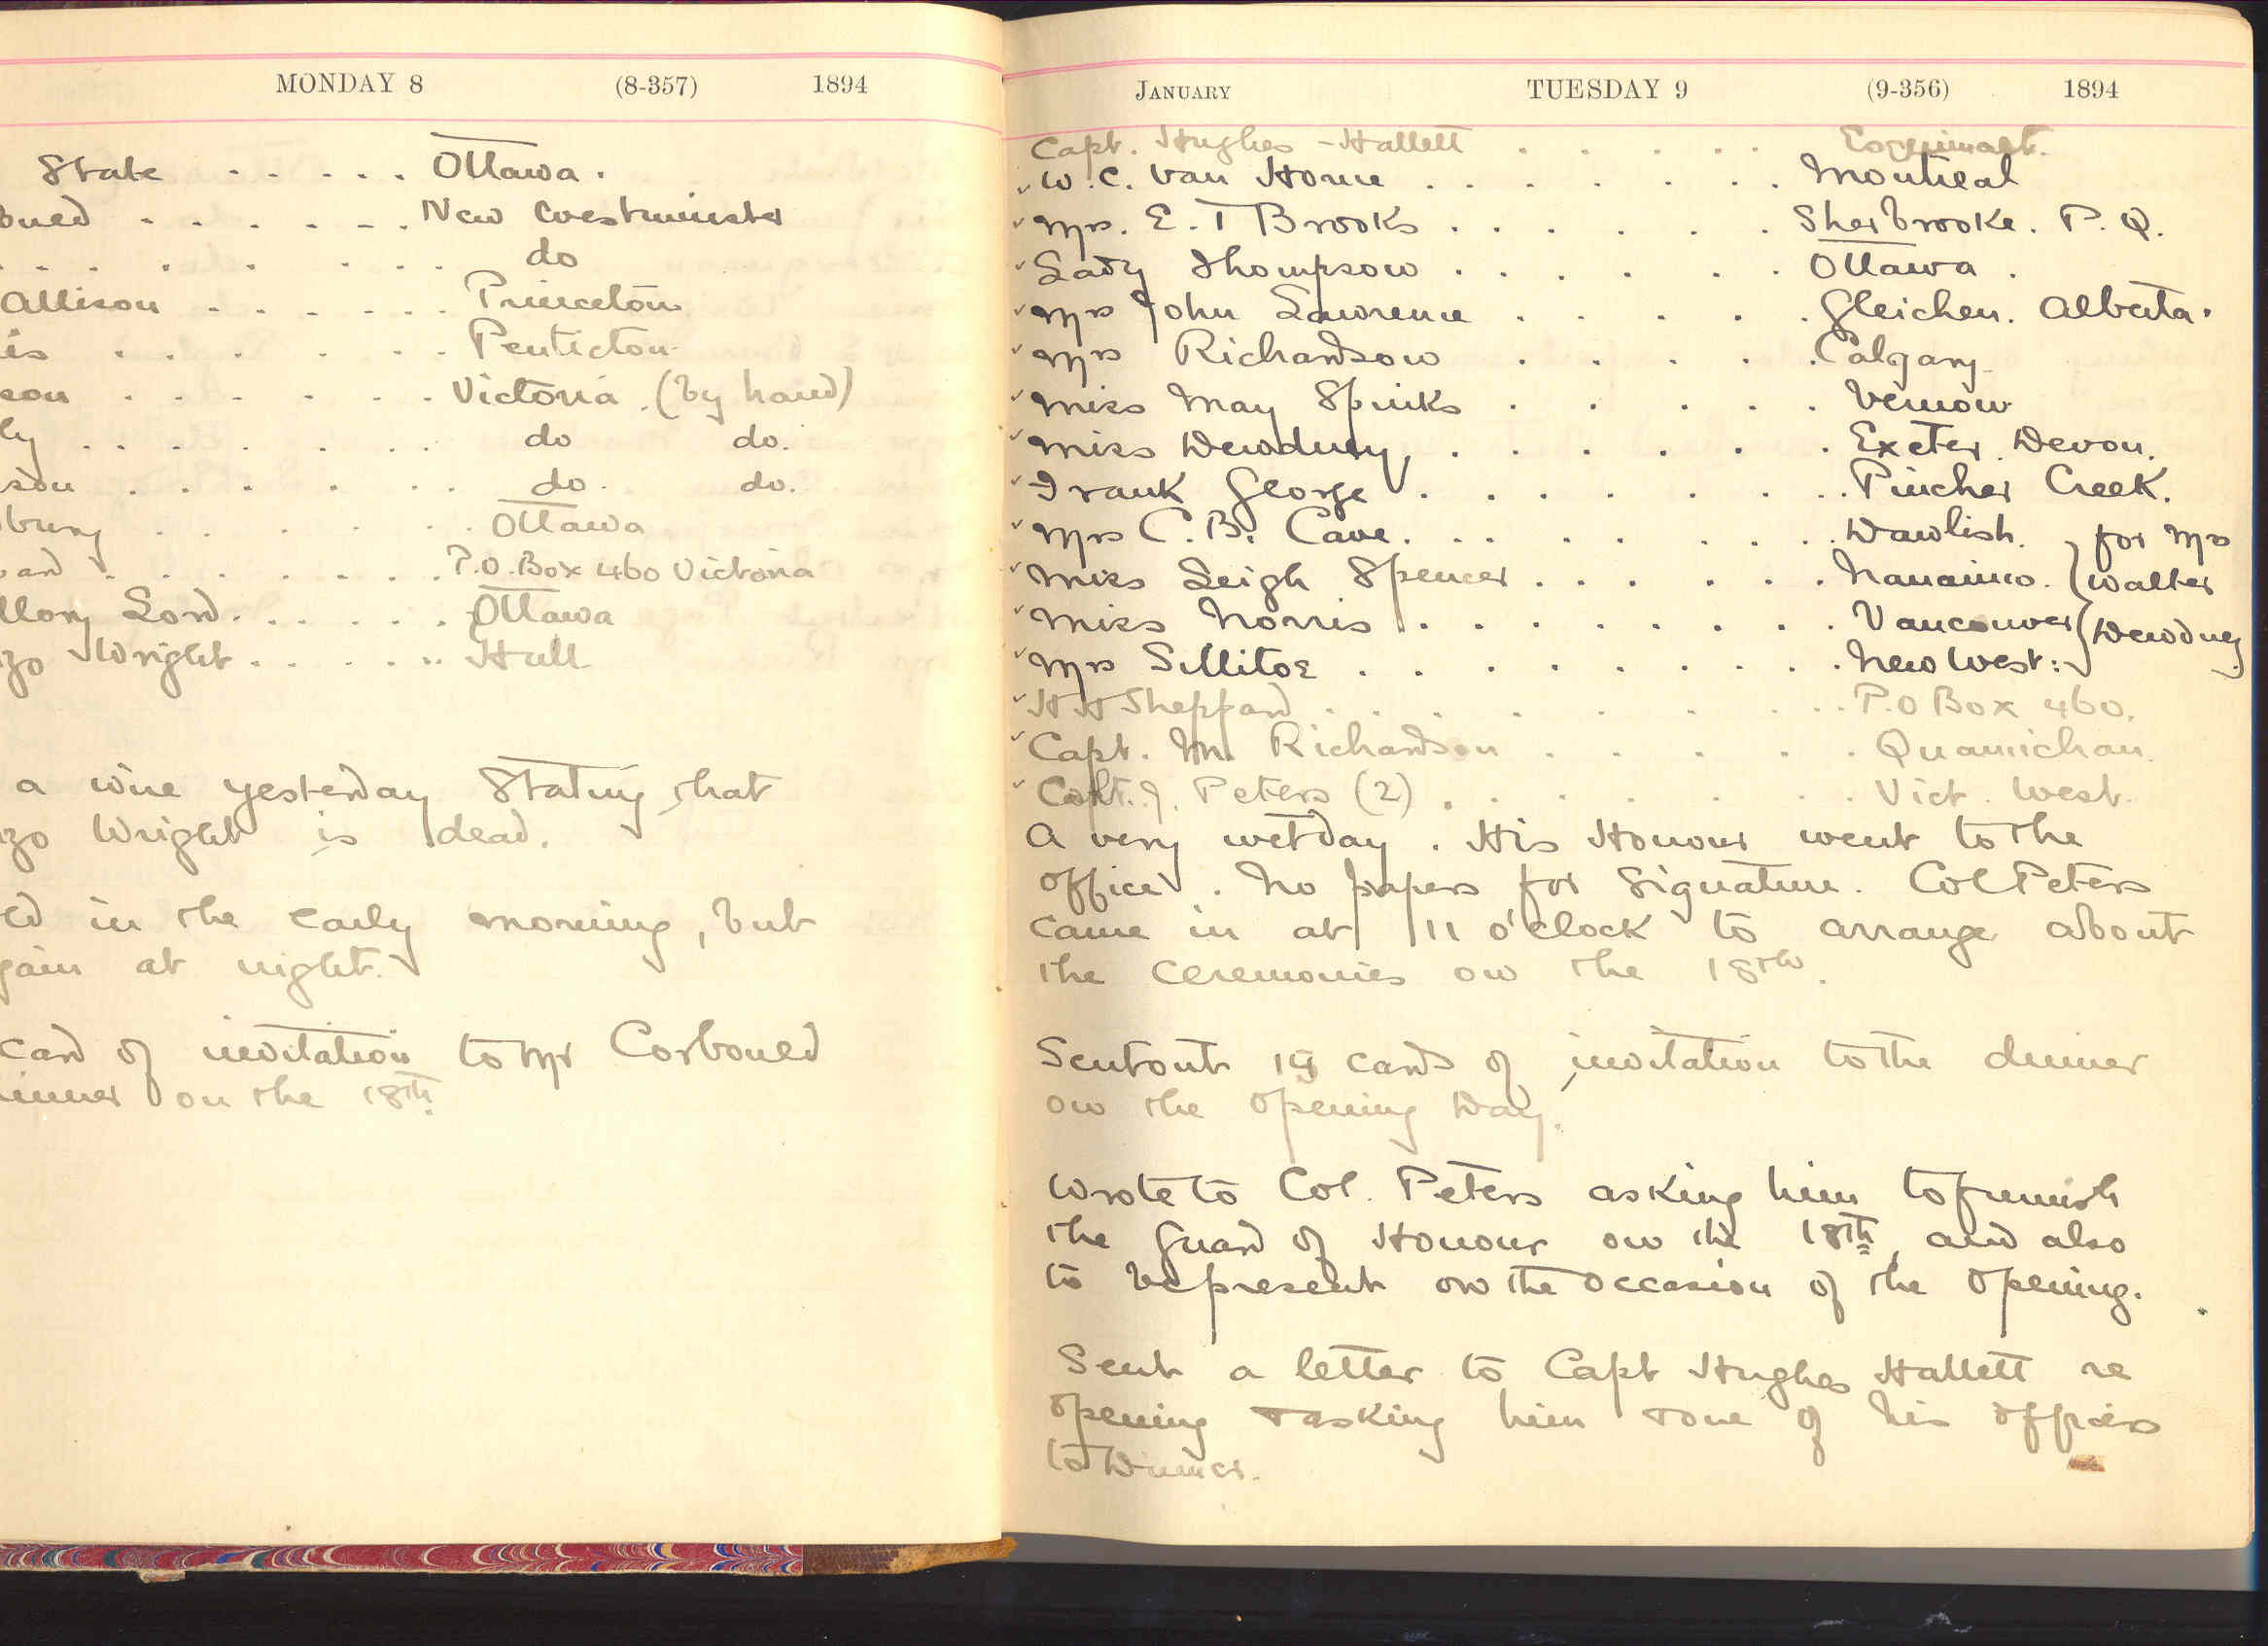 MONDAY 8 (8-357) 1894
State . . . . . Ottawa.
oued . . . . . . New Westminster
. . . . . . . do
Allison . . . . . . Princeton
is . . . . . . Penticton
son . . . . . . Victoria. (by hand)
ly . . . . . . do do.
son . . . . . . do. do.
bury . . . . . . Ottawa
ard . . . . . . P.O. Box 460 Victoria
llory Lord. . . . . . Ottawa
zo Wright . . . . . Hull
a wire yesterday stating that
zo Wright is dead.
ed in the early morning, but
gain at night.
card of invitation to Mr Corbould
inner on the 18th.
JANUARY TUESDAY 9 (9-356) 1894
Capt. Hughes-Hallett . . . . . Esquimalt.
W. C. Van Horne . . . . . . . Montreal
Mrs. E. T Brooks . . . . . . Sherbrooke. P. Q.
Lady Thompson . . . . . . Ottawa.
Mrs John Lawrence . . . . . Gleichen. Alberta.
Mrs Richardson . . . . . Calgary
Miss May Spinks . . . . . Vernon
Miss Dewdney, . . . . . . Exeter. Devon.
Frank George . . . . . . . Pincher Creek.
Mrs C. B. Cave. . . . . . . . Dawlish. for Mrs
Miss Leigh Spencer . . . . . . Nanaimo. Walter
Miss Norris . . . . . . . . Vancouver Dewdney
Mrs Sillitoe . . . . . . . . New West:
H H Sheppard . . . . . . . P.O Box 460.
Capt. M. Richardson . . . . . Quamichan.
Capt. J. Peters (2) . . . . . . Vict. West.
A very wet day. His Honour went to the
office. No papers for signature. Col Peters
came in at 11 o'clock to arrange about
the ceremonies on the 18th.
Sent out 19 cards of invitation to the dinner
on the opening day.
Wrote to Col. Peters asking him to furnish
the Guard of Honour on the 18th, and also
to be present on the occasion of the opening.
Sent a letter to Capt Hughes Hallett re
opening & asking him & one of his officers
to dinner.